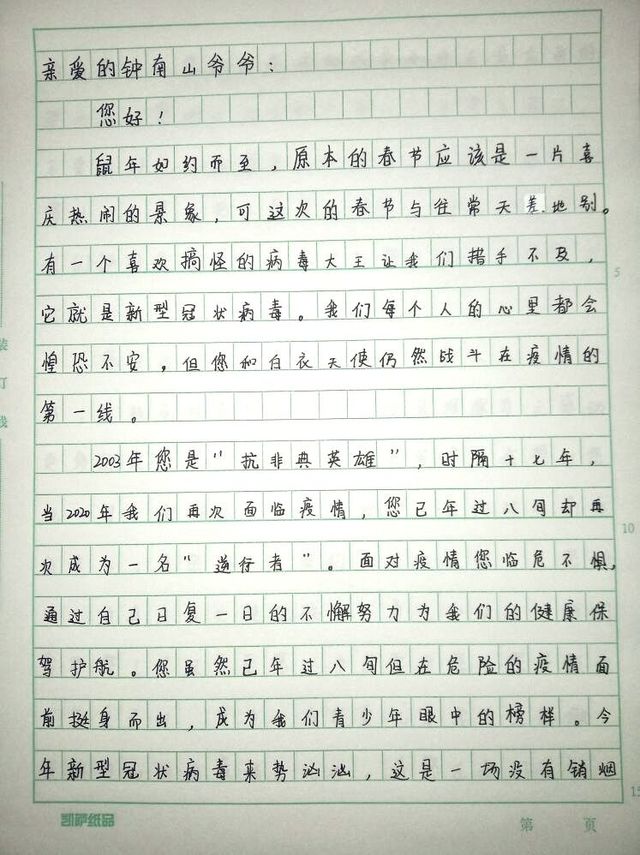 亲爱的钟南山爷爷：
您好！
鼠年如约而至，原本的春节应该是一片喜
庆热闹的景象，可这次的春节与往常天差地别。
有一个喜欢搞怪的病毒大王让我们措手不及，
5
它就是新型冠状病毒。我们每个人的心里都会
惶恐不安。但您和白衣天使仍然战斗在疫情的
第一线。
2003年您是“抗非典英雄”，时隔十七年，
当2020年我们再次面临疫情，您已年过八旬却再
10
次成为一名“逆行者”。面对疫情您临危不惧，
通过自己日复一日的不懈努力为我们的健康保
驾护航。您虽然已年过八旬但在危险的疫情面
前挺身而出，成为我们青少年眼中的榜样。今
年新型冠状病毒来势汹汹，这是一场没有销烟
15
凯萨纸品
第 页
装
订
线